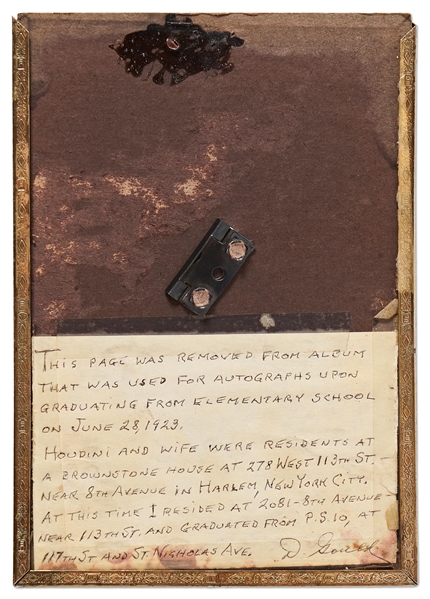 THIS PAGE WAS REMOVED FROM ALBUM
THAT WAS USED FOR AUTOGRAPHS UPON
GRADUATING FROM ELEMENTARY SCHOOL
ON JUNE 28, 1923.
HOUDINI AND WIFE WERE RESIDENTS AT
A BROWNSTONE HOUSE AT 278 WEST 113TH ST. –
NEAR 8TH AVENUE IN HARLEM, NEW YORK CITY.
AT THIS TIME I RESIDED AT 2081-8TH AVENUE –
NEAR 113TH ST. AND GRADUATED FROM P.S. 10, AT
117TH ST AND ST. NICHOLAS AVE. D.